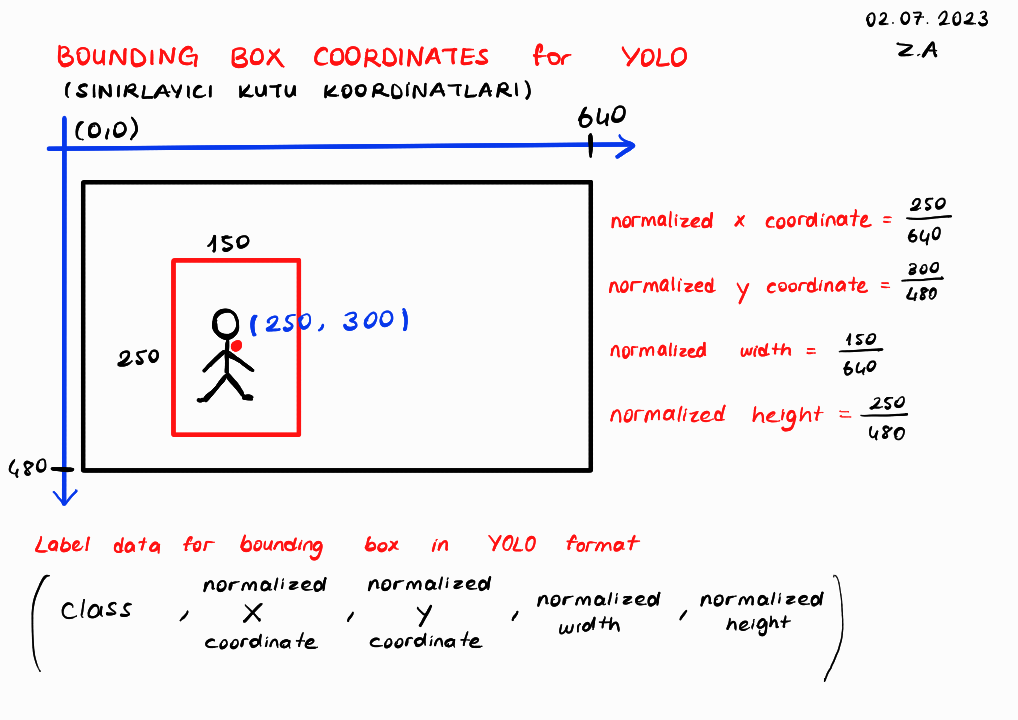 02.07.2023
Z.A
BOUNDING BOX COORDINATES for YOLO
(SINIRLAYICI KUTU KOORDİNATLARI)
(0,0)
640
normalized x coordinate = 250/640
150
normalized y coordinate = 300/480
(250, 300)
250
normalized width = 150/640
normalized height = 250/480
480
Label data for bounding box in YOLO format
(class, normalized X coordinate, normalized Y coordinate, normalized width, normalized height)